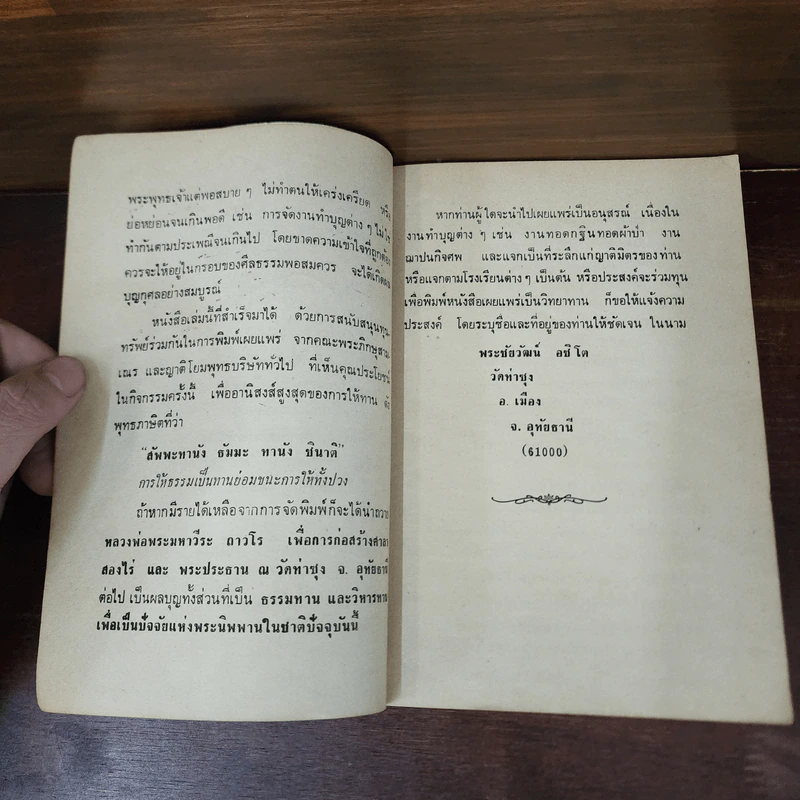 พระพุทธเจ้าแต่พอสบาย ๆ ไม่ทำตนให้เคร่งเครียด หรือ
ย่อหย่อนจนเกินพอดี เช่น การจัดงานทำบุญต่าง ๆ ไม่ใช่
ทำกันตามประเพณีจนเกินไป โดยขาดความเข้าใจที่ถูกต้อง
ควรจะให้อยู่ในกรอบของศีลธรรมพอสมควร จะได้เกิดผล
บุญกุศลอย่างสมบูรณ์
หนังสือเล่มนี้ที่สำเร็จมาได้ ด้วยการสนับสนุนทุน
ทรัพย์ร่วมกันในการพิมพ์เผยแพร่ จากคณะพระภิกษุสาม
เณร และญาติโยมพุทธบริษัททั่วไป ที่เห็นคุณประโยชน์
ในกิจกรรมครั้งนี้ เพื่ออานิสงส์สูงสุดของการให้ทาน ดัง
พุทธภาษิตที่ว่า
"สัพพะทานัง ธัมมะ ทานัง ชินาติ"
การให้ธรรมเป็นทานย่อมชนะการให้ทั้งปวง
ถ้าหากมีรายได้เหลือจากการจัดพิมพ์ก็จะได้นำถวาย
หลวงพ่อพระมหาวีระ ถาวโร เพื่อการก่อสร้างศาลา
สองไร่ และ พระประธาน ณ วัดท่าซุง จ. อุทัยธานี
ต่อไป เป็นผลบุญทั้งส่วนที่เป็น ธรรมทาน และวิหารทาน
เพื่อเป็นปัจจัยแห่งพระนิพพานในชาติปัจจุบันนี้
หากท่านผู้ใดจะนำไปเผยแพร่เป็นอนุสรณ์ เนื่องใน
งานทำบุญต่าง ๆ เช่น งานทอดกฐินทอดผ้าป่า งาน
ฌาปนกิจศพ และแจกเป็นที่ระลึกแก่ญาติมิตรของท่าน
หรือแจกตามโรงเรียนต่างๆ เป็นต้น หรือประสงค์จะร่วมทุน
เพื่อพิมพ์หนังสือเผยแพร่เป็นวิทยาทาน ก็ขอให้แจ้งความ
ประสงค์ โดยระบุชื่อและที่อยู่ของท่านให้ชัดเจน ในนาม
พระชัยวัฒน์ อชิโต
วัดท่าซุง
อ. เมือง
จ. อุทัยธานี
(61000)